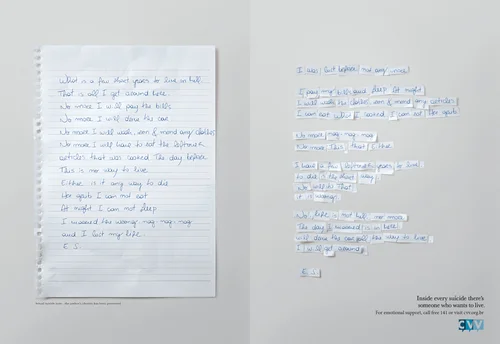 What is a few short years to live in hell.
That is all I get around here.
No more I will pay the bills
No more I will drive the car
No more I will wash, iron & mend any clothes
No more I will have to eat the leftover
articles that was cooked the day before
This is no way to live
Either is it any way to die
Her grub I can not eat
At night I can not sleep
I married the wrong nag-nag-nag
and I lost my life.
E. S.
I was lost before not any more
I pay my bills and sleep at night
I will wash the clothes, iron & mend any articles
I can eat what I cooked I can eat the grub
No more nag-nag-nag
No more this that
I have a few leftover years to live
to die is the short way
No will to that
it is wrong
No, life is not hell no more
The day I married is in hell
I will drive the car all the way to live
I will get around
E. S.
Inside every suicide there's
someone who wants to live.
For emotional support, call free 141 or visit cvv.org.br
CVV